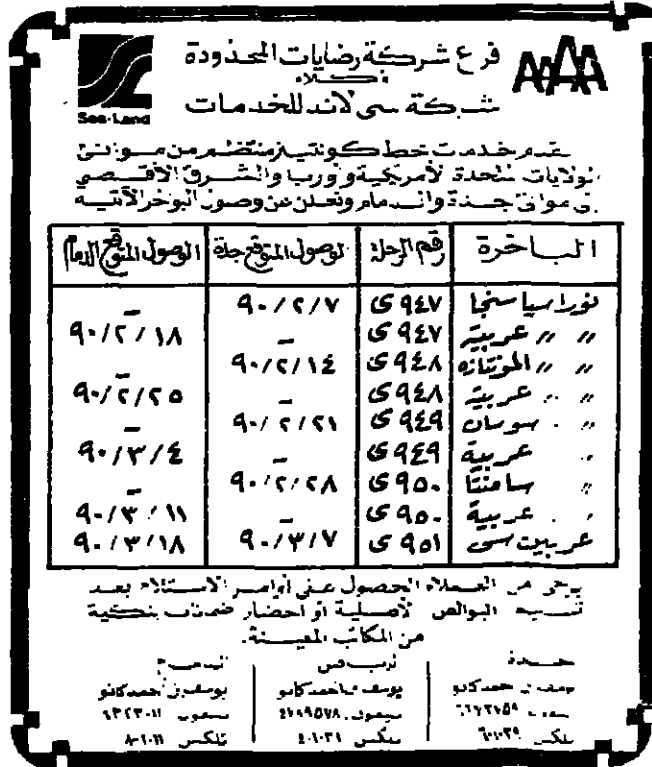 فرع شركة رضايات المحدودة
وكلاء
شركة سى لاند للخدمات
Sea-Land
تقدم خدمات خط كونتينر منتظم من موانئ
الولايات المتحدة الأمريكية وأوربا والشرق الأقصى
إلى موانئ جدة والدمام وتعلن عن وصول البواخر الآتية
الباخرة رقم الرحلة الوصول المتوقع جدة الوصول المتوقع الدمام
نورا سيا سنجا ٩٤٧ ى ٩٠/٢/٧ –
〃 〃 عربية ٩٤٧ ى – ٩٠/٢/١٨
〃 〃 ٩٤٨ ى ٩٠/٢/١٤ –
〃 〃 عربية ٩٤٨ ى – ٩٠/٢/٢٥
〃 〃 سوسان ٩٤٩ ى ٩٠/٢/٢١ –
〃 عربية ٩٤٩ ى – ٩٠/٣/٤
〃 سامنتا ٩٥٠ ى ٩٠/٢/٢٨ –
〃 عربية ٩٥٠ ى – ٩٠/٣/١١
عربيت سى ٩٥١ ى ٩٠/٣/٧ ٩٠/٣/١٨
يرجى من العملاء الحصول على أوامر الاستلام بعد
تسليم البوالص الأصلية أو احضار ضمانات بنكية
من المكاتب المعينة.
جدة
يوسف بن احمد كانو
تلكس
يوسف بن احمد كانو
تلكس
الدمام
يوسف بن احمد كانو
تلكس